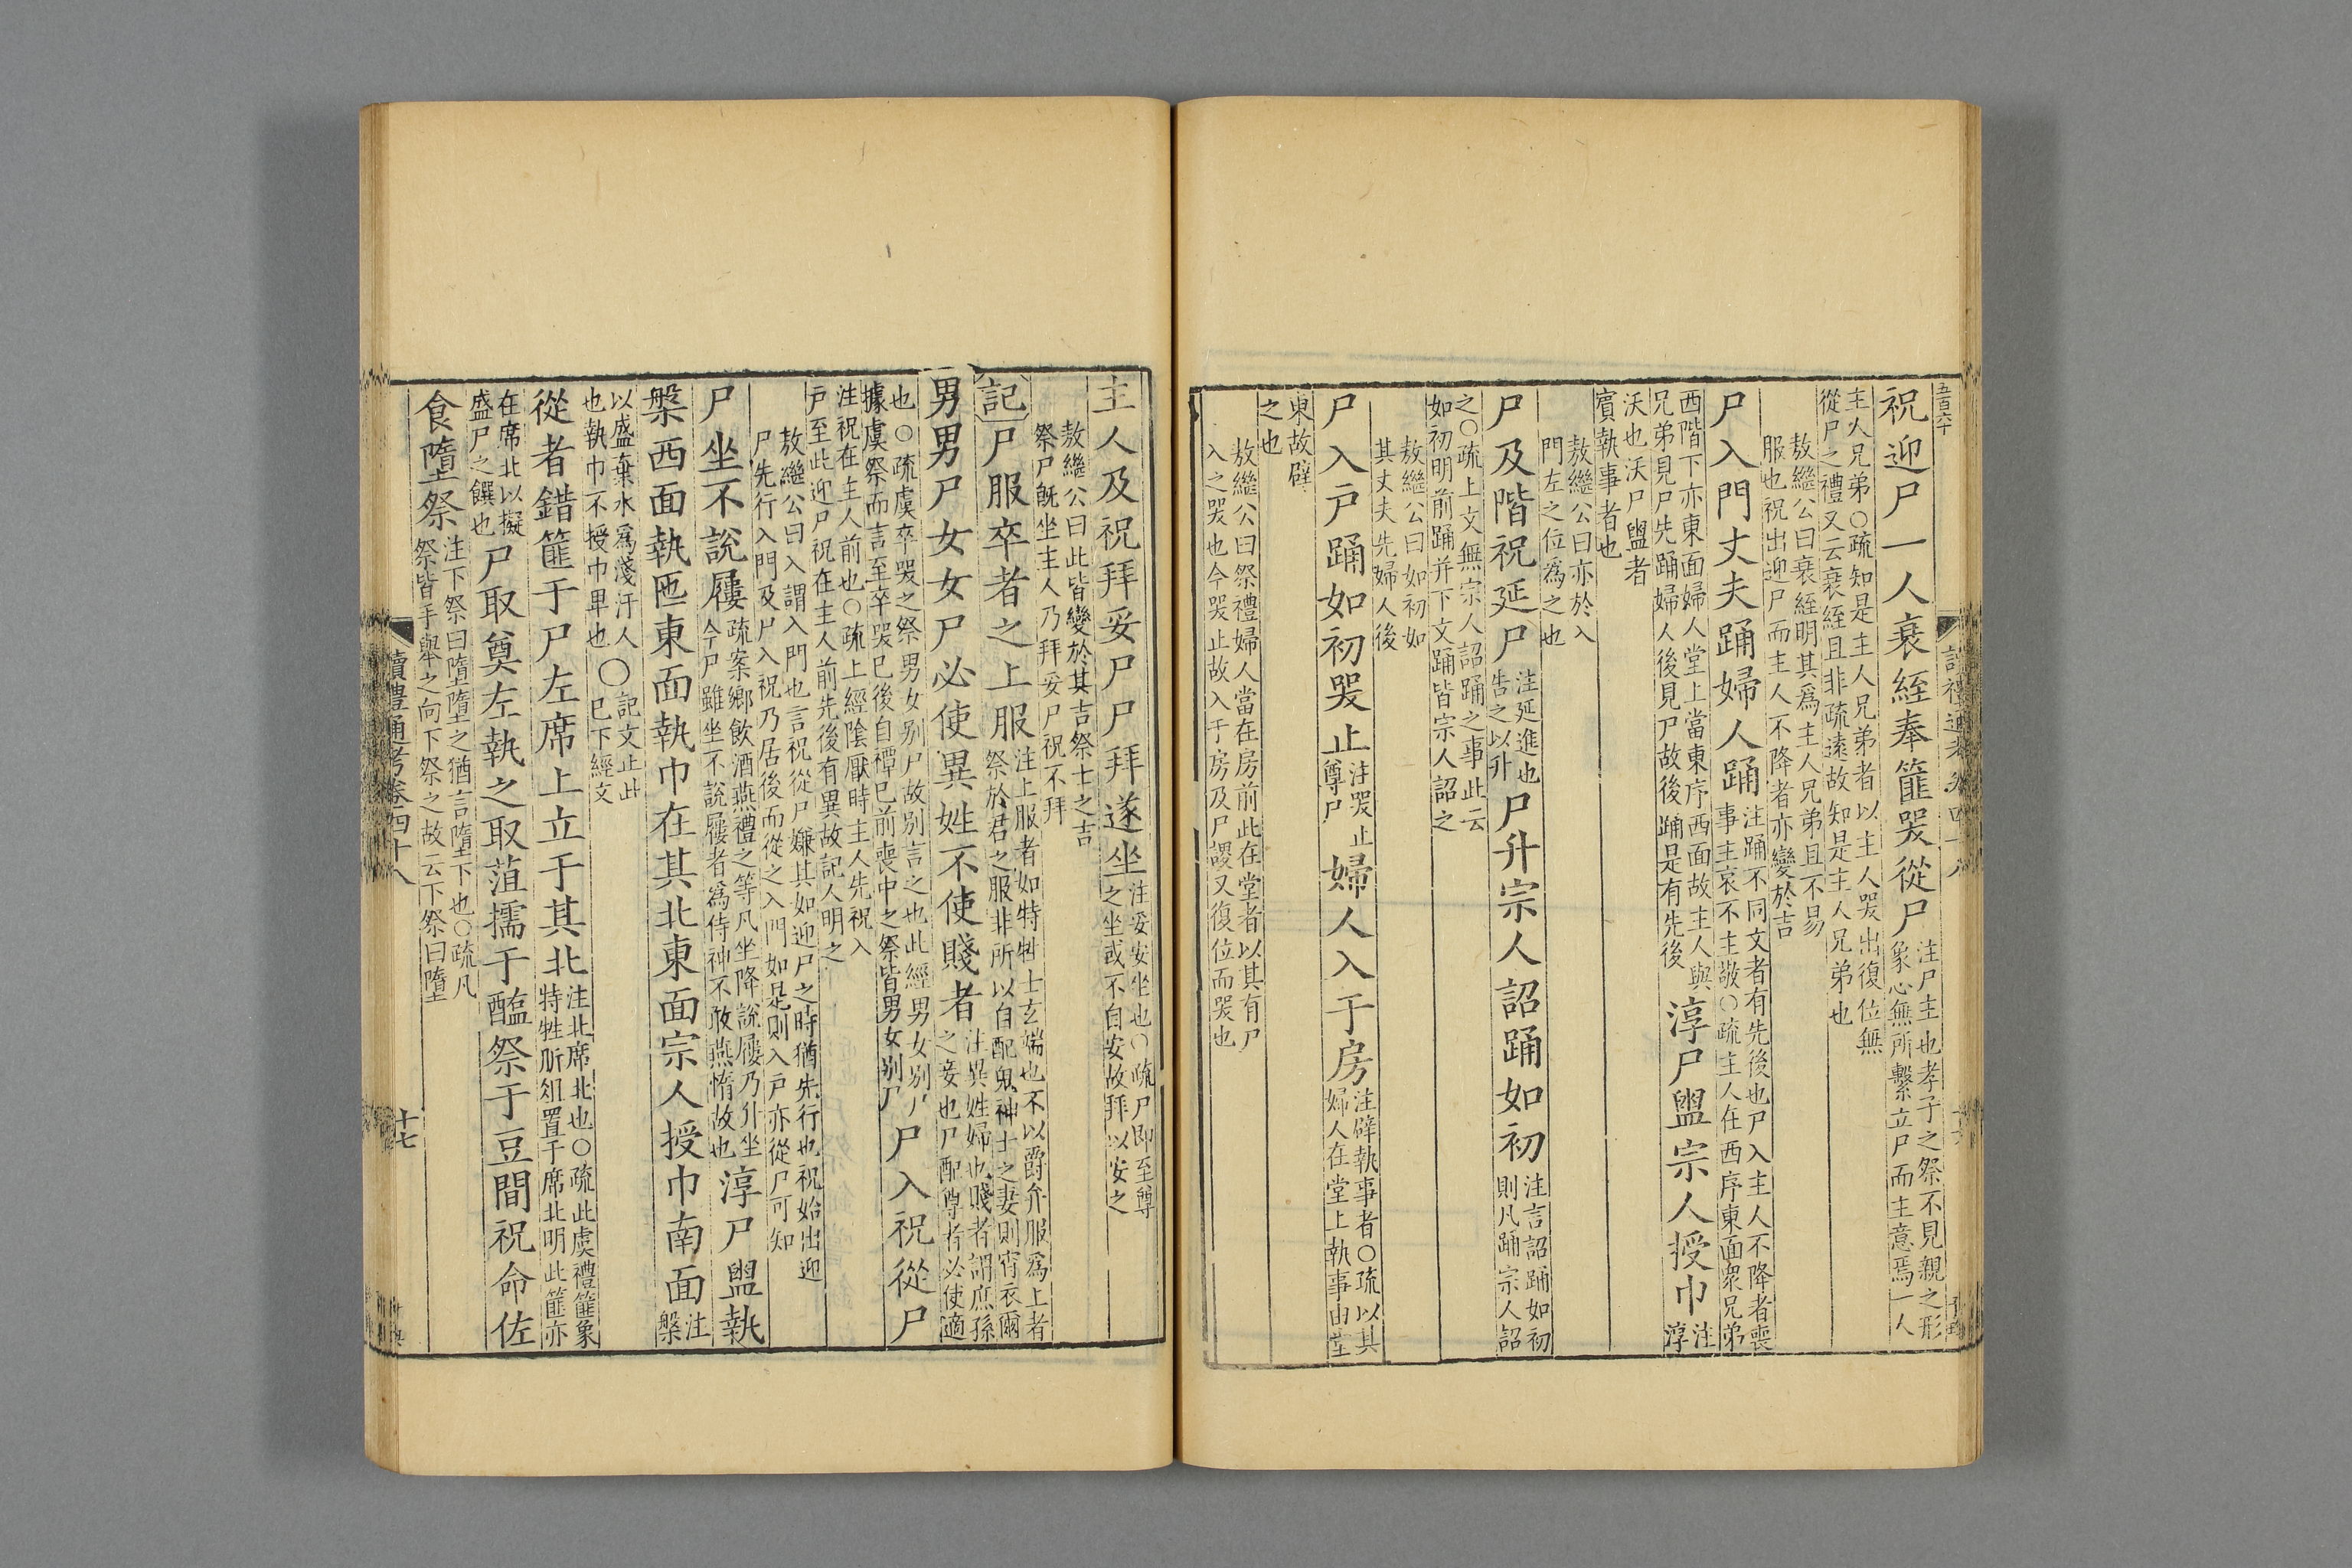 五百六十
祝迎尸一人衰絰奉篚哭從尸注尸主也孝子之祭不見親之形象心無所繫立尸而主意焉一人
主人兄弟○疏知是主人兄弟者以主人哭出復位無從尸之禮又云衰絰且非疏遠故知是主人兄弟也
敖繼公曰衰絰明其爲主人兄弟且不易服也祝出迎尸而主人不降者亦變於吉
尸入門丈夫踊婦人踊注踊不同文者有先後也尸入主人不降者喪事主哀不主敬○疏主人在西序東面衆兄弟
西階下亦東面婦人堂上當東序西面故主人與兄弟見尸先踊婦人後見尸故後踊是有先後淳尸盥宗人授巾注淳
沃也沃尸盥者賓執事者也
敖繼公曰亦於入門左之位爲之也
尸及階祝延尸注延進也告之以升尸升宗人詔踊如初注言詔踊如初則凡踊宗人詔
之○疏上文無宗人詔踊之事此云如初明前踊并下文踊皆宗人詔之
敖繼公曰如初如其丈夫先婦人後
尸入戸踊如初哭止注哭止尊尸婦人入于房注辟執事者○疏以其婦人在堂上執事由堂
東故辟之也
敖繼公曰祭禮婦人當在房前此在堂者以其有尸入之哭也今哭止故入于房及尸謖又復位而哭也
主人及祝拜妥尸尸拜遂坐注妥安坐也○疏尸即至尊之坐或不自安故拜以安之
敖繼公曰此皆變於其吉祭士之吉祭尸旣坐主人乃拜妥尸祝不拜
記尸服卒者之上服注上服者如特牲士玄端也不以爵弁服爲上者祭於君之服非所以自配鬼神士之妻則宵衣爾
男男尸女女尸必使異姓不使賤者注異姓婦也賤者謂庶孫之妾也尸配尊者必使適
也○疏虞卒哭之祭男女别尸故别言之也此經男女别尸據虞祭而言至卒哭已後自禫已前喪中之祭皆男女别尸尸入祝從尸
注祝在主人前也○疏上經陰厭時主人先祝入戸至此迎尸祝在主人前先後有異故記人明之
敖繼公曰入謂入門也言祝從尸嫌其如迎尸之時猶先行也祝始出迎尸先行入門及尸入祝乃居後而從之入門如是則入戸亦從尸可知
尸坐不說屨疏案鄉飮酒燕禮之等凡坐降說屨乃升坐今尸雖坐不說屨者爲侍神不敢燕惰故也淳尸盥執
槃西面執匜東面執巾在其北東面宗人授巾南面注槃
以盛棄水爲淺汙人也執巾不授巾卑也○記文止此○已下經文
從者錯篚于尸左席上立于其北注北席北也○疏此虞禮篚象特牲肵俎置于席北明此篚亦
在席北以擬盛尸之饌也尸取奠左執之取菹擩于醢祭于豆間祝命佐
食隋祭注下祭曰隋隋之猶言隋下也○疏凡祭皆手舉之向下祭之故云下祭曰隋
讀禮通考卷四十八
十七